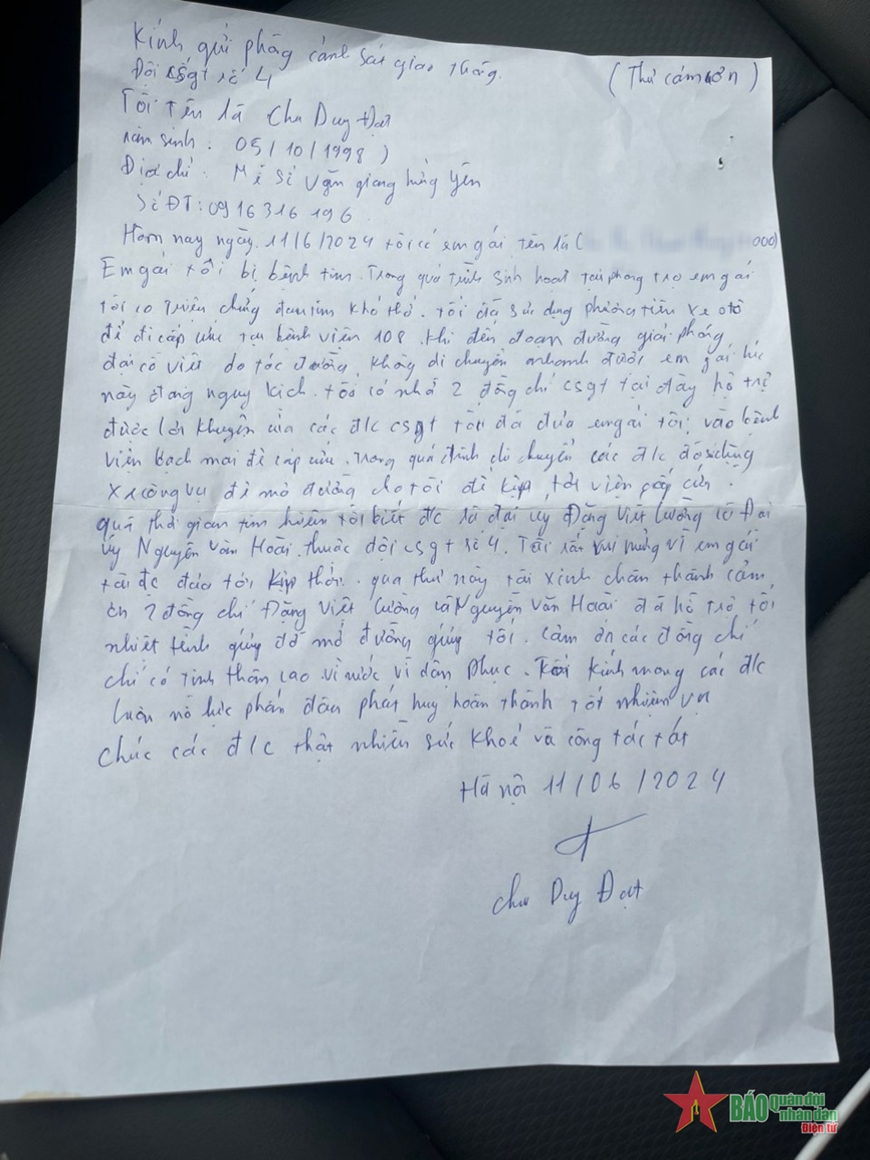 Kính gửi phòng cảnh sát giao thông. (Thư cảm ơn)
Đội csgt số 4
Tôi tên là Chu Duy Đạt
năm sinh: 05/10/1998)
Địa chỉ: Mễ Sở Văn giang hưng yên
Số ĐT: 0916316196
Hôm nay ngày 11/6/2024 tôi có em gái tên là ( 000)
Em gái tôi bị bệnh tim. Trong quá trình sinh hoạt tại phòng trọ em gái
tôi có triệu chứng đau tim khó thở. tôi đã sử dụng phương tiện xe otô
để đi cấp cứu tại bệnh viện 108. khi đến đoạn đường giải phóng
đại cồ việt do tắc đường không di chuyển nhanh được em gái lúc
này đang nguy kịch. tôi có nhờ 2 đồng chí csgt tại đây hỗ trợ
được lời khuyên của các đ/c csgt tôi đã đưa em gái tôi vào bệnh
viện bạch mai để cấp cứu. Trong quá trình di chuyển các đ/c đã sử dụng
xe công vụ để mở đường cho tôi để kịp tới viện cấp cứu.
quá thời gian tìm hiểu tôi biết đc là đại úy Đặng Việt Cường và Đại
úy Nguyễn Văn Hoài thuộc đội csgt số 4. Tôi rất vui mừng vì em gái
tôi đc đưa tới kịp thời. qua thư này tôi xinh chân thành cảm
ơn 2 đồng chí Đặng Việt Cường và Nguyễn Văn Hoài đã hỗ trợ tôi
nhiệt tình giúp đỡ mở đường giúp tôi. cảm ơn các đồng chí
chí có tinh thần cao vì nước vì dân phục. Tôi kính mong các đ/c
luôn nỗ lực phấn đấu phát huy hoàn thành tốt nhiệm vụ
chúc các đ/c thật nhiều sức khoẻ và công tác tốt
Hà nội 11/06/2024
chu Duy Đạt
BÁO quân đội
nhân dân
Điện tử